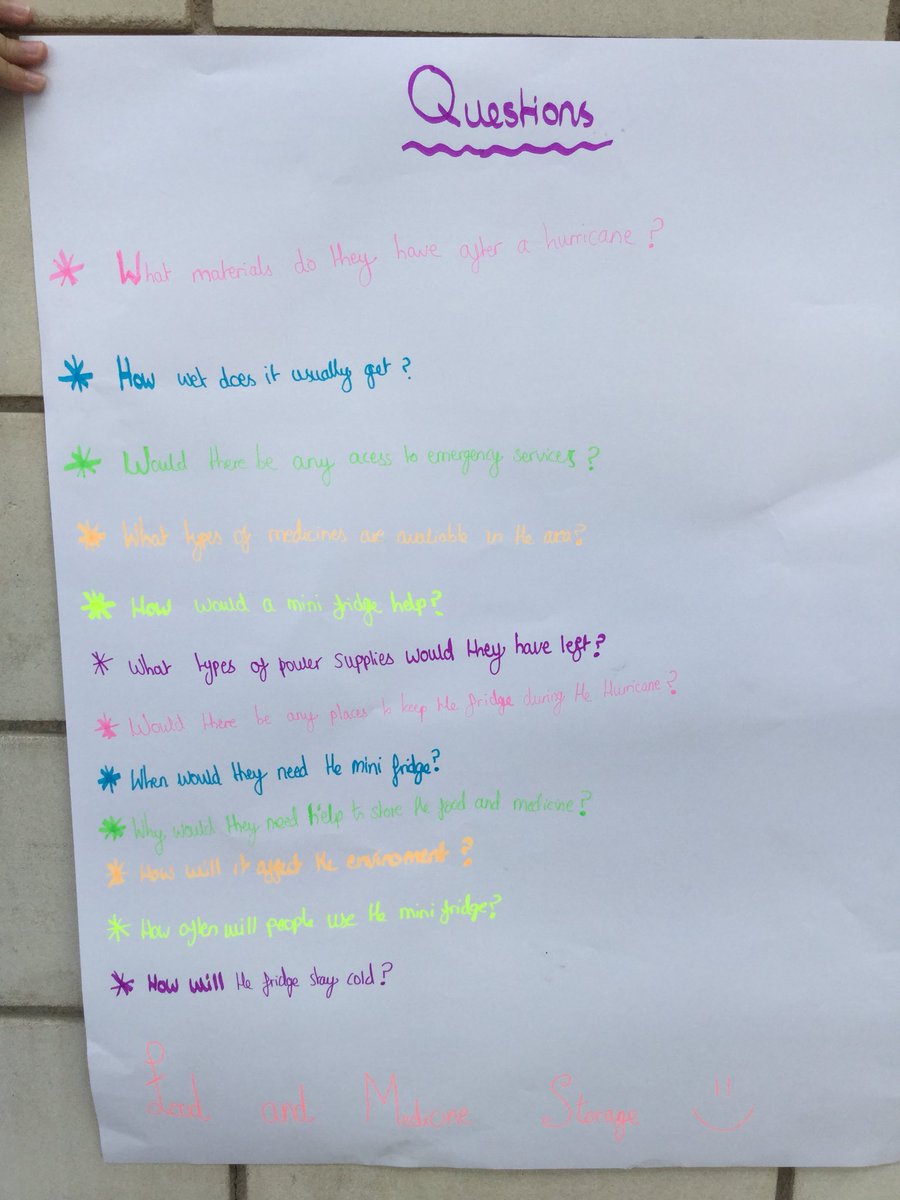 Questions
* What materials do they have after a hurricane?
* How wet does it usually get?
* Would there be any acess to emergency services?
* What types of medicines are avaliable in the area?
* How would a mini fridge help?
* What types of power supplies would they have left?
* Would there be any places to keep the fridge during the Hurricane?
* When would they need the mini fridge?
* Why would they need help to store the food and medicine?
* How will it affect the enviroment?
* How often will people use the mini fridge?
* How will the fridge stay cold?
Food and Medicine Storage :)